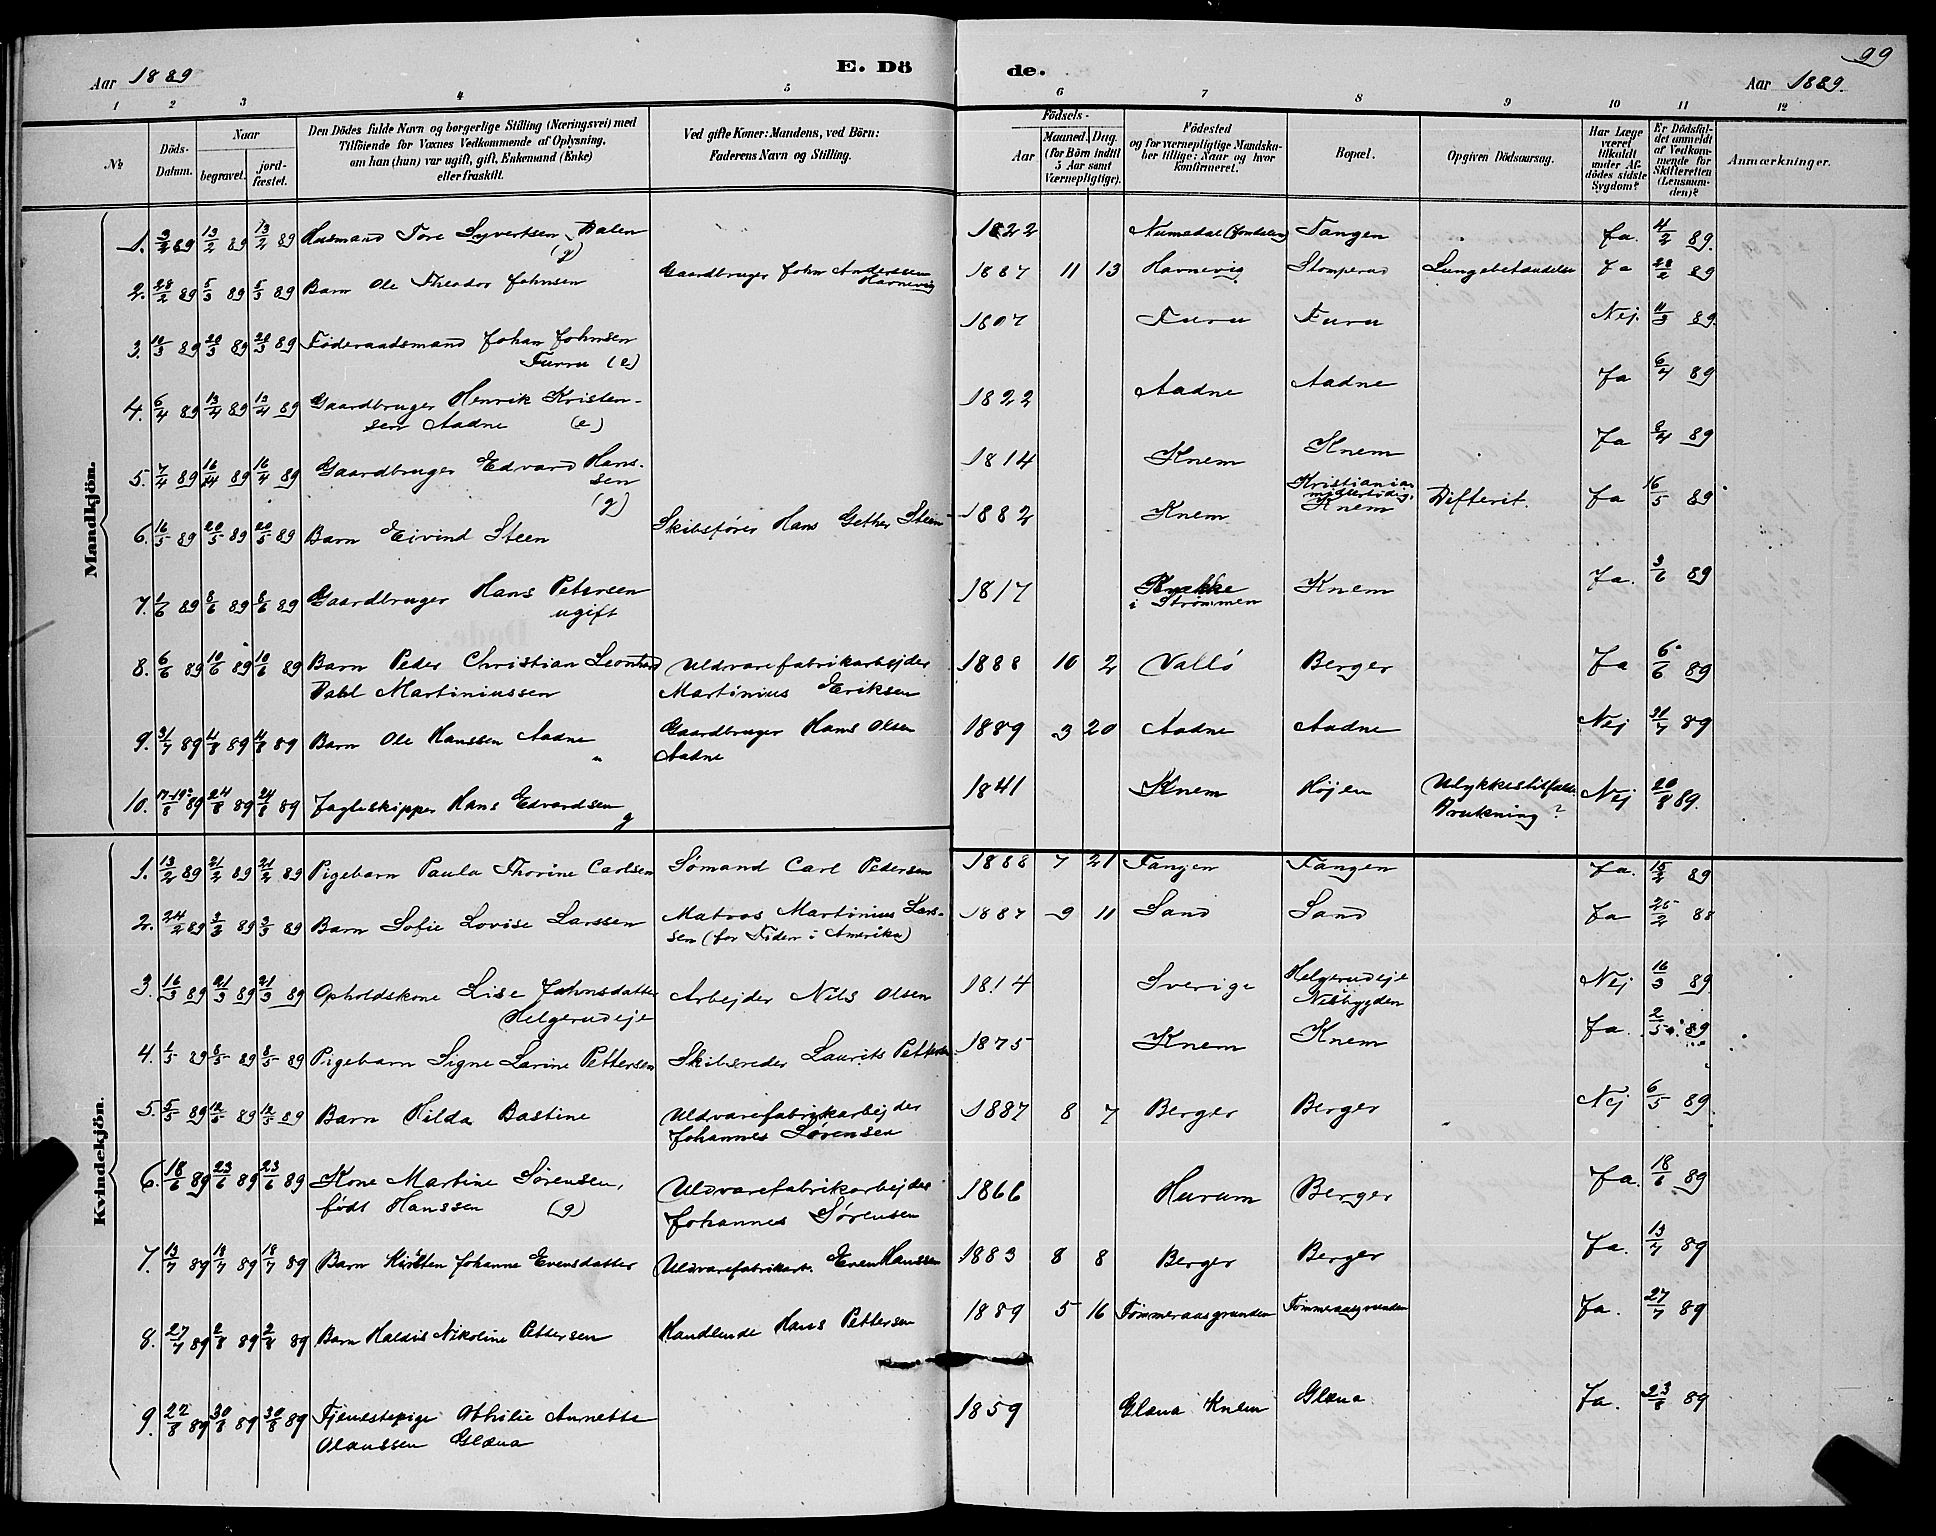 99
Aar 1889
E. Dö
de.
Aar 1889.
1 2 3 4 5 6 7 8 9 10 11 12
No
Döds-Datum.
Naar
begravet.
jord-fæstet.
Den Dödes fulde Navn og borgerlige Stilling (Næringsvei) med
Tilföiende for Voxnes Vedkommende af Oplysning,
om han (hun) var ugift, gift, Enkemand (Enke)
eller fraskilt.
Ved gifte Koner: Mandens, ved Börn:
Faderens Navn og Stilling.
Födsels-
Aar
Maaned. Dag.
(for Börn indtil
5 Aar samt
Værnepligtige).
Födested
og for værnepligtige Mandska-
ber tillige: Naar og hvor
konfirmeret.
Bopæl.
Opgiven Dödsaarsag.
Har Læge
været
tilkaldt
under Af-
dödes sidste
Sygdom?
Er Dödsfal-
det anmeldt
af Vedkom-
mende for
Skifteretten
(Lensman-
den)?
Anmærkninger.
Mandkjön.
1. 3/2 89 13/2 89 13/2 89 Husmand Tore Syvertsen Dalen (g) 1822 Numedal Tangen Ja. 4/2 89.
2. 28/2 89 5/3 89 5/3 89 Barn Ole Theodor Johnsen Gaardbruger John Anderssen Havnevig 1887 11 13 Havnevig Stomperud Lungebetændelse Ja 28/2 89
3. 10/3 89 20/3 89 20/3 89 Föderaadsmand Johan Johnsen Furru (e) 1807 Furu Furu Nej. 11/3 89.
4. 6/4 89 13/4 89 13/4 89 Gaardbruger Henrik Kristen-
sen Aadne (e) 1822 Aadne Aadne Ja 6/4 89
5. 7/4 89 16/4 89 16/4 89 Gaardbruger Edvard Hans-
sen (g) 1814 Knem Knem Ja 8/4 89
6. 16/5 89 20/5 89 20/5 89 Barn Eivind Steen Skibsfører Hans Gether Steen 1882 Knem Kristiania midlertidig. Knem Difterit. Ja 16/5 89
7. 1/6 89 8/6 89 8/6 89 Gaardbruger Hans Petersen
ugift 1817 i Strømmen Knem Ja. 3/6 89
8. 6/6 89 10/6 89 10/6 89 Barn Peder Christian Leonhard
Dahl Martiniussen Uldvarefabrikarbejder
Martinius Eriksen 1888 10 2 Vallö Berger Ja 6/6 89
9. 31/7 89 4/8 89 4/8 89 Barn Ole Hanssen Aadne Gaardbruger Hans Olsen
Aadne 1889 3 20 Aadne Aadne Nej 31/7 89
10. 17-19?/8 89 24/8 89 24/8 89 Jagteskipper Hans Edvardsen g 1841 Knem Højen Ulykkestilfælde
Drukning? Nej 20/8 89.
Kvindekjön.
1. 13/2 89 21/2 89 21/2 89 Pigebarn Paula Thorine Carlsen Sömand Carl Pedersen 1888 7 21 Tangen Tangen Ja. 15/2 89
2. 24/2 89 3/3 89 3/3 89 Barn Sofie Lovise Larssen Matros Martinius Lars-
sen (for Tiden i Amerika) 1887 9 11 Sand Sand Ja 25/2 88
3. 16/3 89 21/3 89 21/3 89 Opholdskone Lise Johnsdatter
Helgerudeje Arbejder Nils Olsen 1814 Sverige Helgerudeje
Nesbygden Nej 16/3 89
4. 1/5 89 8/5 89 8/5 89 Pigebarn Signe Larine Pettersen Skibsreder Laurits Pettersen 1875 Knem Knem Ja. 2/5 89
5. 5/5 89 12/5 89 12/5 89 Barn Hilda Bastine Uldvarefabrikarbejder
Johannes Sörensen 1887 8 7 Berger Berger Nej 6/5 89.
6. 18/6 89 23/6 89 23/6 89 Kone Martine Sörensen,
født Hanssen (g) Uldvarefabrikarbejder
Johannes Sörensen 1866 Hurum Berger Ja. 18/6 89
7. 13/7 89 18/7 89 18/7 89 Barn Kirsten Johanne Evensdatter Uldvarefabrikarb. Even Hanssen 1883 8 8 Berger Berger Ja. 13/7 89
8. 27/7 89 2/8 89 2/8 89 Barn Haldis Nikoline Pettersen Handlende Hans Pettersen 1889 5 16 Tømmeraasgrunden Tømmeraasgrunden Ja. 27/7 89
9. 22/8 89 30/8 89 30/8 89 Tjenestepige Othilie Annette
Olaussen Glæna 1859 Glæna Knem Glæna Ja. 23/8 89